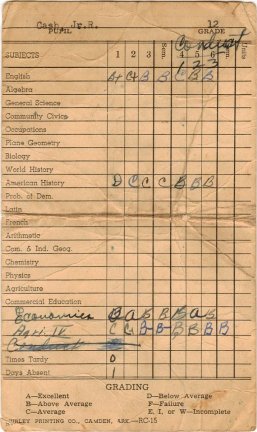 Cash, Jr.R. 12
PUPIL GRADE
Conduct
SUBJECTS 1 2 3 Sem. 4 5 6 Units
1 2 3
English A+ C+ B B C B B
Algebra
General Science
Community Civics
Occupations
Plane Geometry
Biology
World History
American History D C C C B B B
Prob. of Dem.
Latin
French
Arithmetic
Com. & Ind. Geog.
Chemistry
Physics
Agriculture
Commercial Education
Economics B A B B B A B
Agri. IV C C B B B B B
Conduct
Times Tardy 0
Days Absent 1
GRADING
A—Excellent D—Below Average
B—Above Average F—Failure
C—Average E, I, or W—Incomplete
HURLEY PRINTING CO., CAMDEN, ARK.—RC-15